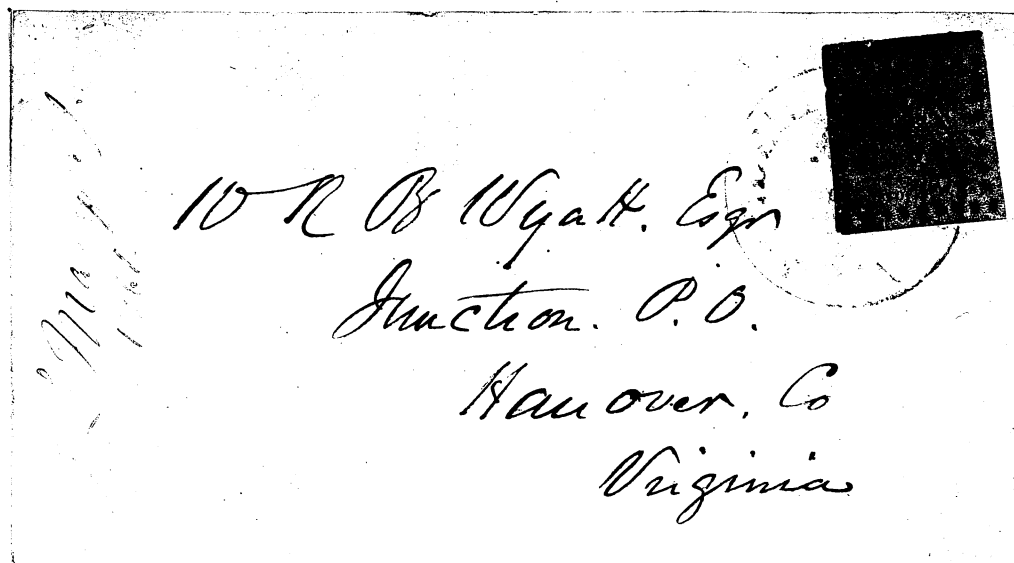 W R B Wyatt. Esqr
Junction. P. O.
Hanover. Co
Virginia